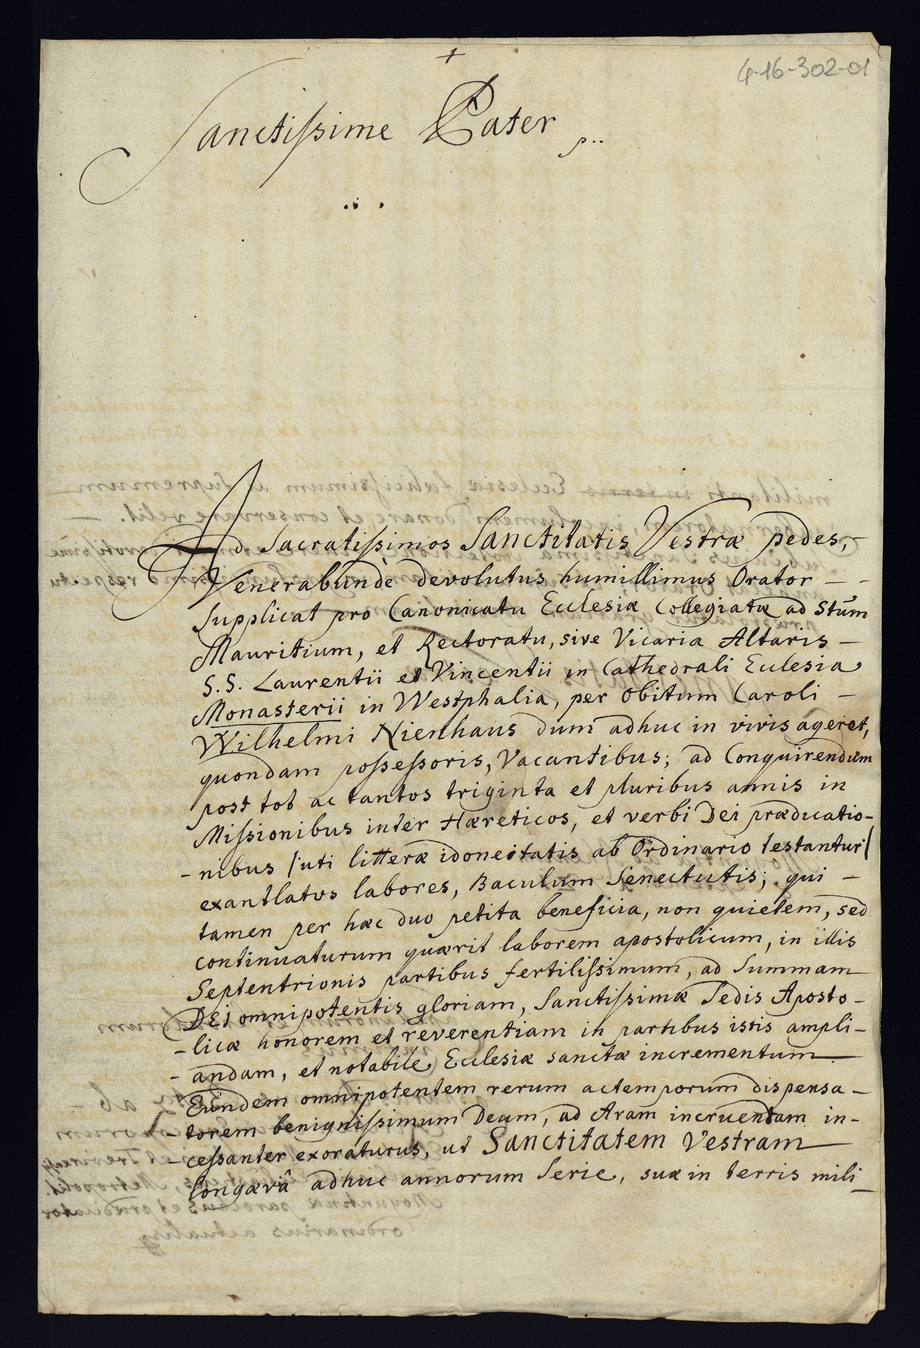 +
4-16-302-01
Sanctissime Pater
Ad Sacratissimos Sanctitatis Vestræ pedes,
Venerabundè devolutus humillimus Orator —
supplicat pro Canonicatu Ecclesiæ Collegiatæ ad Stum̃
Mauritium, et Rectoratu, sive Vicaria Altaris —
S.S. Laurentii et Vincentii in Cathedrali Ecclesia
Monasterii in Westphalia, per obitum Caroli —
Wilhelmi Nienhaus dum adhuc in vivis ageret,
quondam possessoris, Vacantibus; ad Conquirendum
post tot ac tantos triginta et pluribus annis in
Missionibus inter Hæreticos, et verbi Dei prædicatio-
- nibus /uti litteræ idoneitatis ab Ordinario testantur/
exantlatos labores, Baculum Senectutis; qui —
tamen per hæc duo petita beneficia, non quietem, sed
continuaturum quærit laborem apostolicum, in illis
Septentrionis partibus fertilissimum, ad Summam
DEI omnipotentis gloriam, Sanctissimæ Sedis Aposto-
- licæ honorem et reverentiam in partibus istis ampli-
- andam, et notabile Ecclesiæ sanctæ incrementum.
Eundem omnipotentem rerum ac temporum dispensa-
torem benignissimum Deum, ad Aram incruentam in-
- cessanter exoraturus, ut Sanctitatem Vestram
longævâ adhuc annorum Serie, suæ in terris mili-